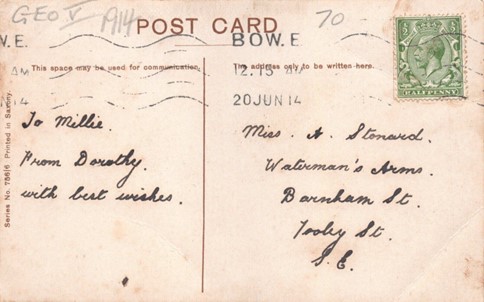 GEO V 1914
70
POST CARD
W.E.
BOW. E
This space may be used for communication.
The address only to be written here.
AM
12.15 AM
14
20 JUN 14
HALFPENNY
To Millie.
From Dorothy.
with best wishes.
Miss. A. Stonard.
Waterman's Arms.
Barnham St.
Tooley St.
S.E.
Printed in Saxony.